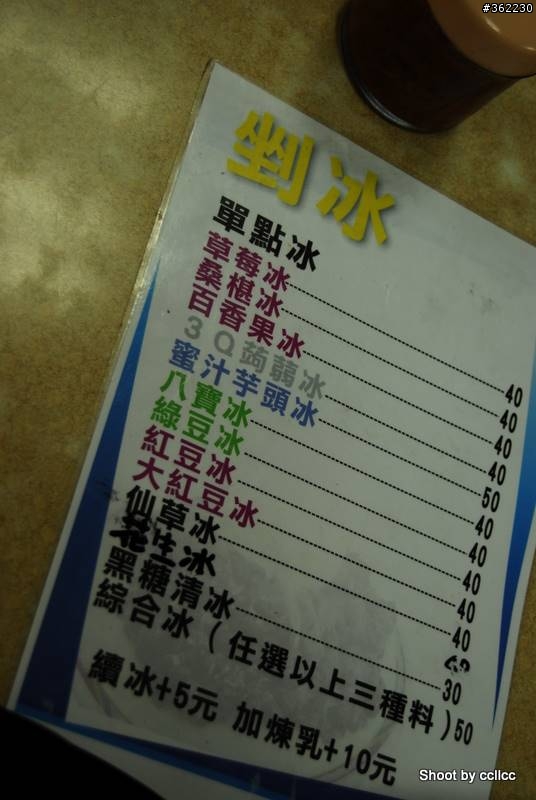 #362230
剉冰
單點冰
草莓冰----------40
桑椹冰----------40
百香果冰----------40
3Q蒟蒻冰----------40
蜜汁芋頭冰----------50
八寶冰----------40
綠豆冰----------40
紅豆冰----------40
大紅豆冰----------40
仙草冰----------40
花生冰 40
黑糖清冰----------30
綜合冰(任選以上三種料)50
續冰+5元 加煉乳+10元
Shoot by ccllcc